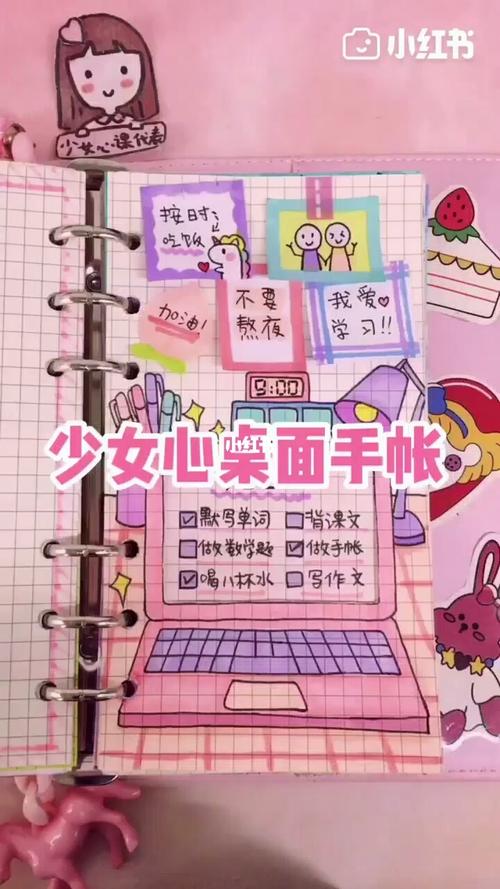 小红书
少女心课代表
按时
吃饭
加油!
不要
熬夜
我爱
学习!!
9:00
少女心桌面手帐
默写单词 背课文
做数学题 做手帐
喝八杯水 写作文